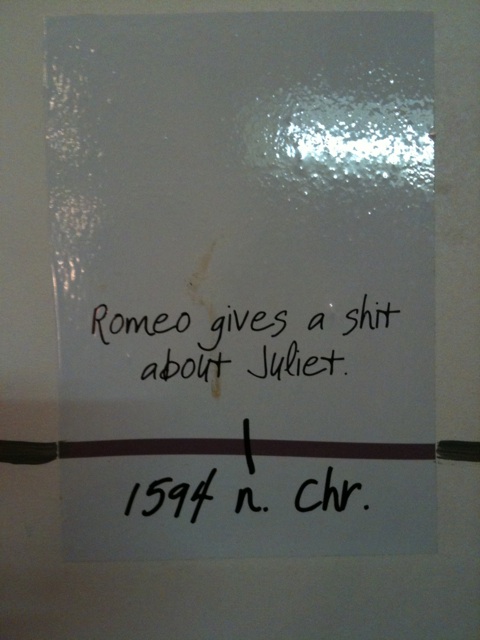 Romeo gives a shit
about Juliet.
1594 n. Chr.